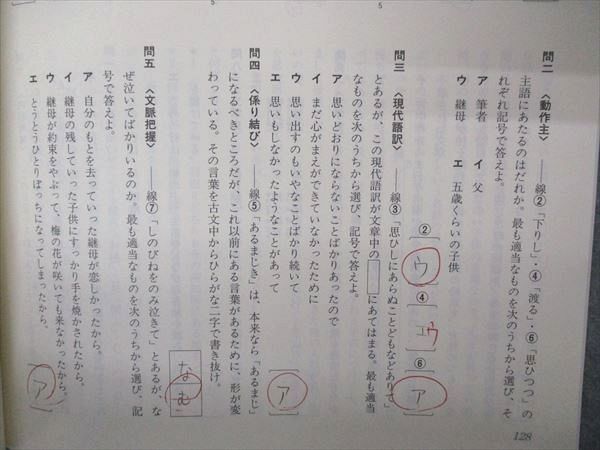 問二 〈動作主〉 ――線②「下りし」・④「渡る」・⑥「思ひつつ」の
主語にあたるのはだれか。最も適当なものを次のうちから選び、そ
れぞれ記号で答えよ。
ア 筆者 イ 父
ウ 継母 エ 五歳くらいの子供
②〔ウ〕 ④〔ウ〕 ⑥〔ア〕
問三 〈現代語訳〉 ――線③「思ひしにあらぬことどもなどありて」
とあるが、この現代語訳が文章中の□にあてはまる。最も適当
なものを次のうちから選び、記号で答えよ。
ア 思いどおりにならないことばかりあったので
イ まだ心がまえができていなかったために
ウ 思い出すのもいやなことばかり続いて
エ 思いもしなかったようなことがあって
〔ア〕
問四 〈係り結び〉 ――線⑤「あるまじき」は、本来なら「あるまじ」
になるべきところだが、これ以前にある言葉があるために、形が変
わっている。その言葉を古文中からひらがな二字で書き抜け。
なむ
問五 〈文脈把握〉 ――線⑦「しのびねをのみ泣きて」とあるが、な
ぜ泣いてばかりいるのか。最も適当なものを次のうちから選び、記
号で答えよ。
ア 自分のもとを去っていった継母が恋しかったから。
イ 継母の残していった子供にすっかり手を焼かされたから。
ウ 継母が約束をやぶって、梅の花が咲いても来なかったから。
エ とうとうひとりぼっちになってしまったから。
〔ア〕
128
5
5